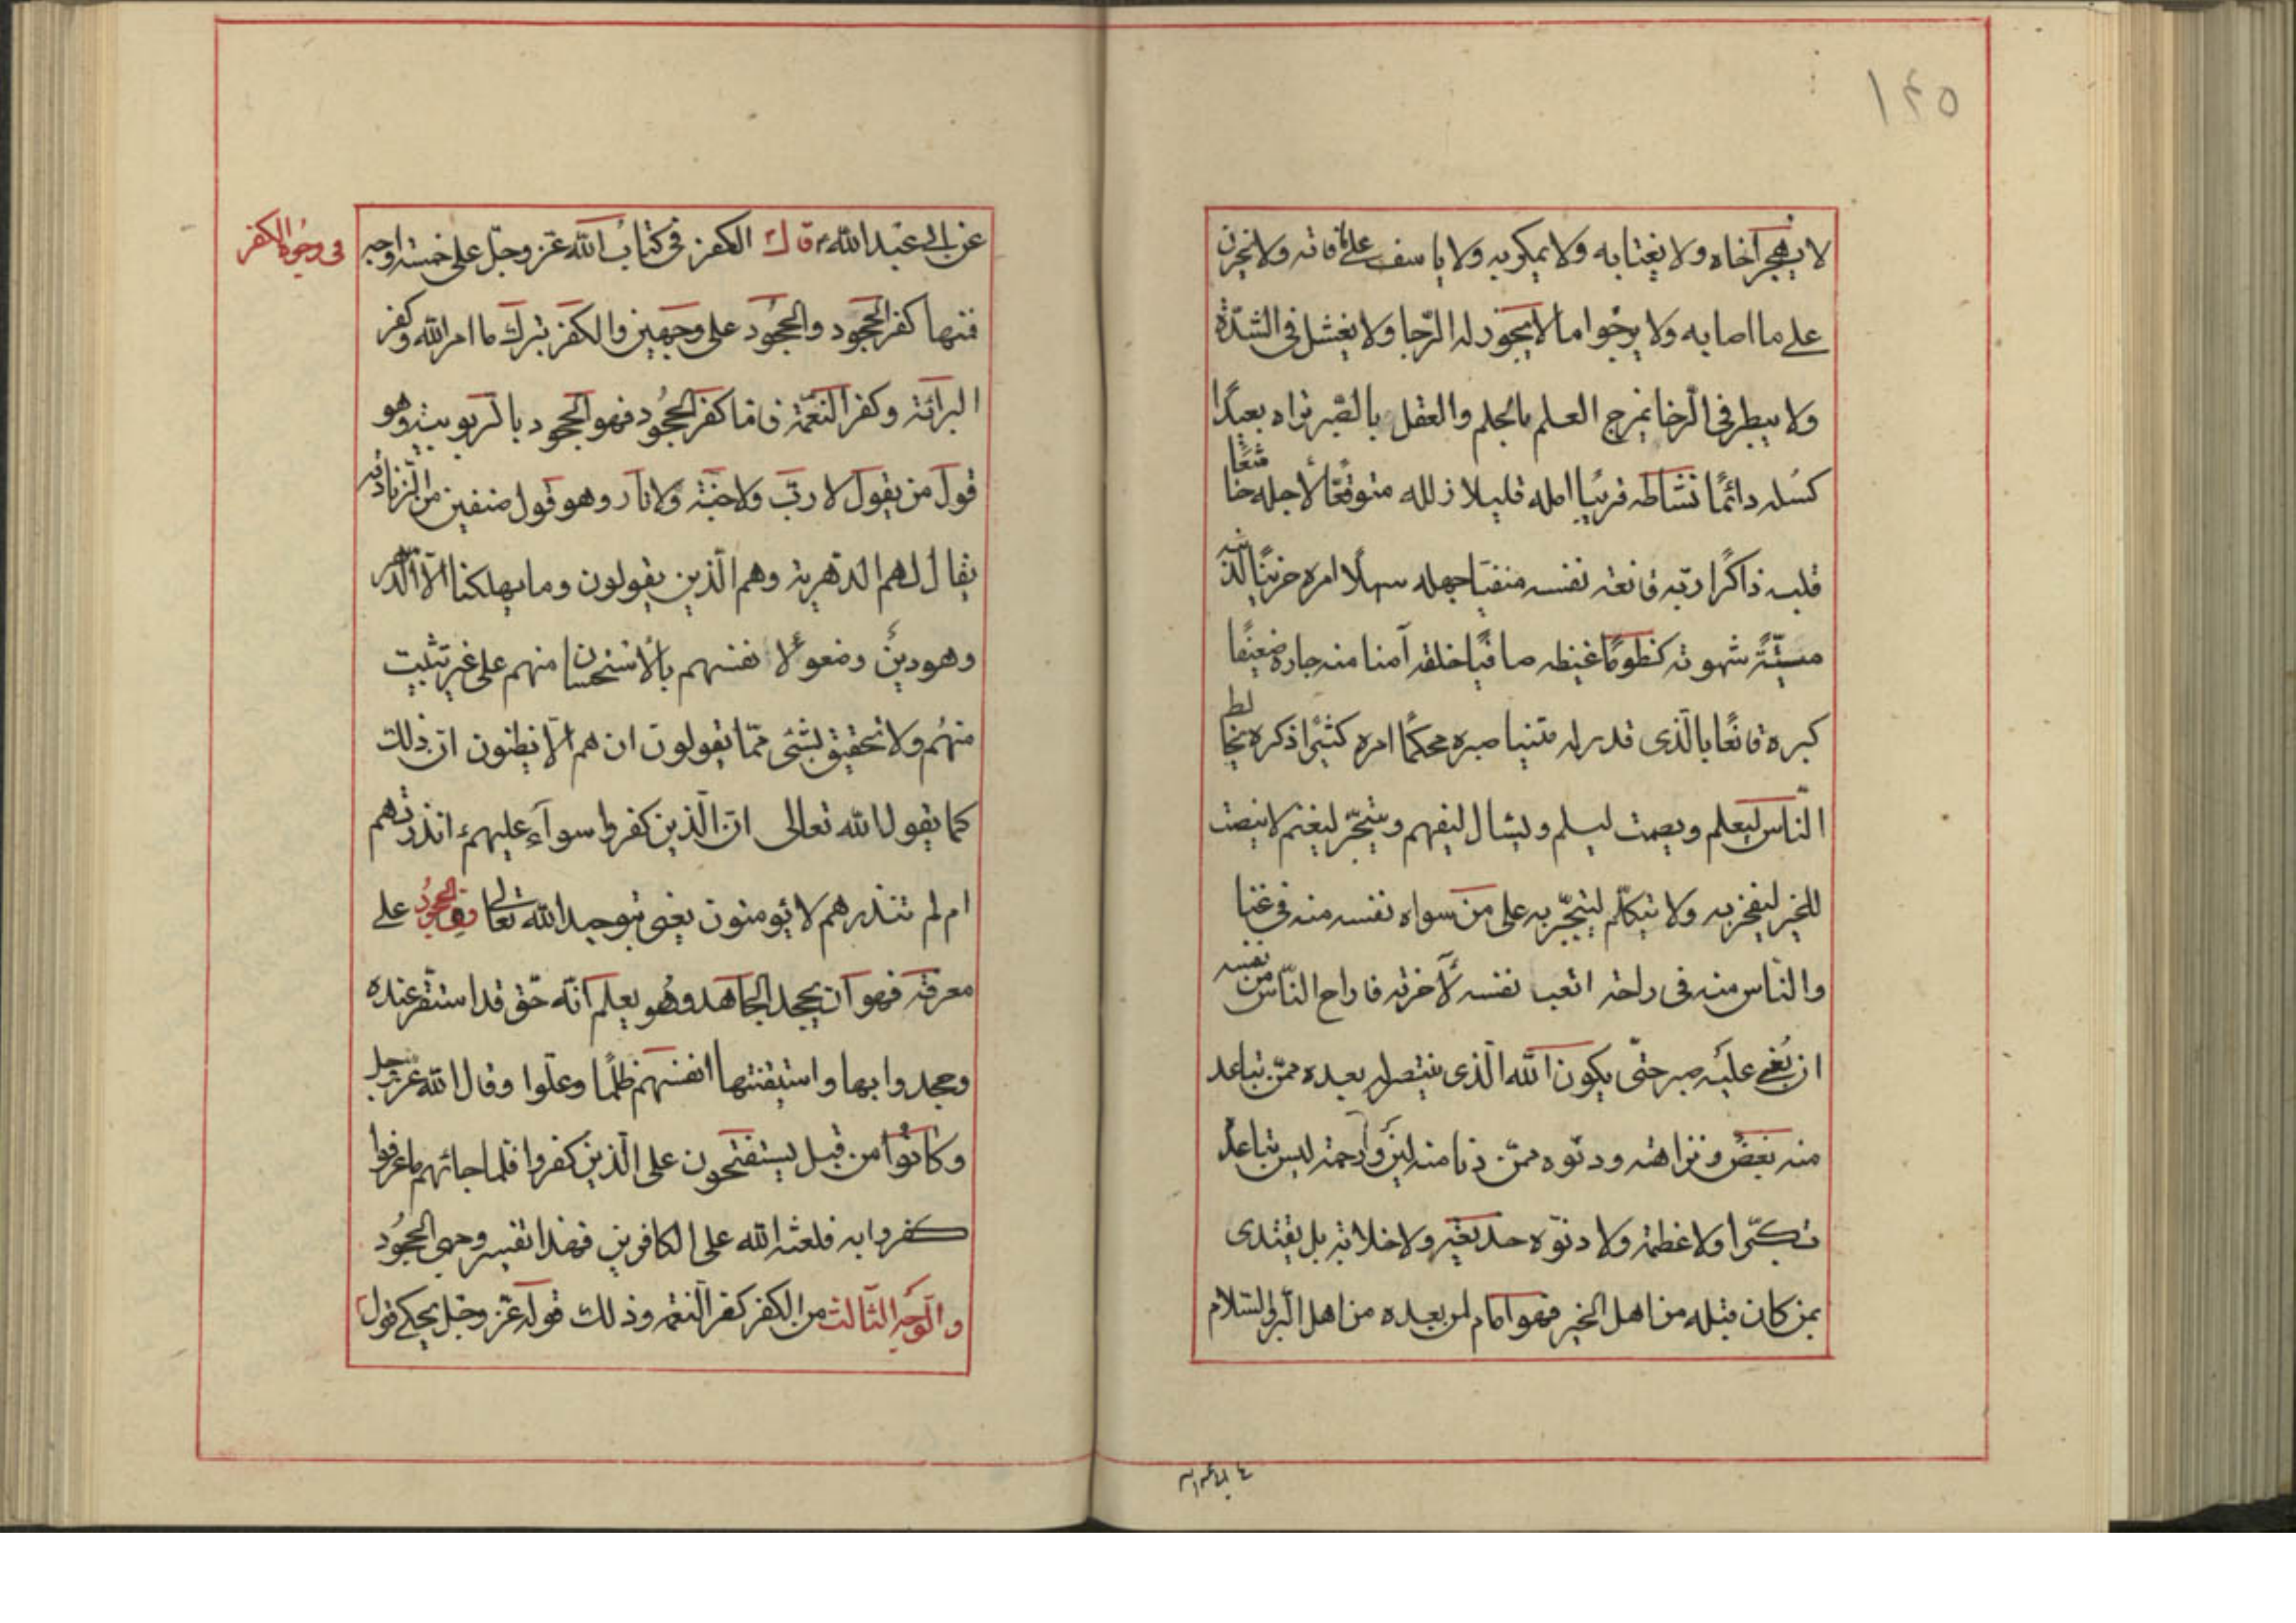 ١۴٥
لا يهجر اخاه ولا يغتابه ولا يمكر به ولا ياسف على ما فاته ولا يحزن
على ما اصابه ولا يرجوا ما لا يجوز له الرّجا ولا يفشل فى الشدّة
ولا يبطر فى الرّخا يمزج العلم بالحلم والعقل بالصّبر تراه بعيدًا
كسله دائمًا نشاطه قريبًا امله قليلا زلله متوقعًا لأجله خاشعًا
قلبه ذاكرًا ربّه قانعة نفسه منفيًا جهله سهلًا امره حزينًا لذنبه
ميّتة شهوته كظومًا غيظه صافيًا خلقه آمنا منه جاره ضعيفًا
كبره قانعًا بالّذى قدر له متينا صبره محكمًا امره كثيرًا ذكره يخالط
النّاس ليعلم ويصمت ليسلم ويسال ليفهم ويتّجر ليغنم لا ينصت
للخير ليفخر به ولا يتكلّم ليتجبّر به على من سواه نفسه منه فى عنا
والنّاس منه فى راحة اتعب نفسه لآخرته فاراح النّاس من نفسه
ان بُغى عليه صبر حتّى يكون الله الّذى ينتصر له بعده ممّن تباعد
منه بغض ونزاهته ودنوّه ممّن دنا منه لين ورحمة ليس تباعده
تكبّرا ولا عظمة ولا دنوّه خديعة ولا خلابة بل يقتدى
بمن كان قبله من اهل الخير فهو امام لمن بعده من اهل البّر والسّلام
فى وجوه الكفر
عن ابى عبد الله ع قال الكفر فى كتاب الله عزّ وجلّ على خمسة اوجه
فمنها كفر الجحود والجحود على وجهين والكفر بترك ما امر الله وكفر
البرائة وكفر النعمة فامّا كفر الجحود فهو الجحود بالربوبية وهو
قول من يقول لا ربّ ولا جنّة ولا نار وهو قول صنفين من الزنادقه
يقال لهم الدّهرية وهم الّذين يقولون وما يهلكنا الّا الدّهر
وهو دينٌ وضعوا لأنفسهم بالأستحسان منهم على غير تثبيت
منهم ولا تحقيق بشئ ممّا يقولون ان هم الّا يظنون انّ ذلك
كما يقول الله تعالى انّ الّذين كفروا سوآء عليهم ءانذرتهم
ام لم تنذرهم لا يؤمنون يعنى بتوحيد الله تعالى وفى الجحود على
معرفة فهو ان يجحد الجاهد وهو يعلم انّه حّق قد استقر عنده
وجحدوا بها واستيقنتها انفسهم ظلمًا وعلّوا وقال الله عز وجل
وكانوا من قبل يستفتحون على الّذين كفروا فلما جائهم ما عرفوا
كفروا به فلعنة الله على الكافرين فهذا تفسير وجهى الجحود
والوجه الثّالث من الكفر كفر النعم وذلك قوله عزّ وجلّ يحكى قول